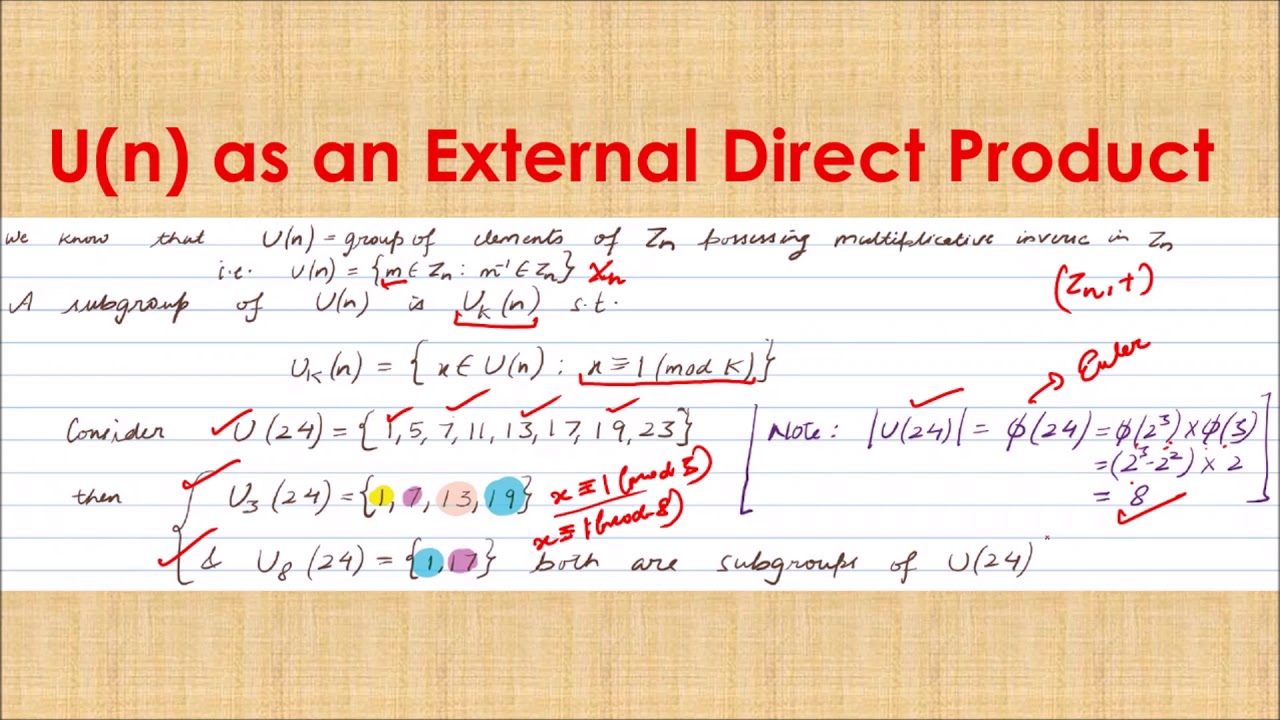 U(n) as an External Direct Product
We know that U(n) = group of elements of Zn possessing multiplicative inverse in Zn
i.e. U(n) = {m ∈ Zn : m⁻¹ ∈ Zn}
(Zn, +)
A subgroup of U(n) is U_K(n) s.t.
U_K(n) = {x ∈ U(n) : x ≡ 1 (mod K)}
Euler
Consider U(24) = {1, 5, 7, 11, 13, 17, 19, 23}
[Note: |U(24)| = ϕ(24) = ϕ(2³) × ϕ(3)
= (2³-2²) × 2
= 8]
then U₃(24) = {1, 7, 13, 19}
x ≡ 1 (mod 3)
x ≡ 1 (mod 8)
& U₈(24) = {1, 17} both are subgroups of U(24)